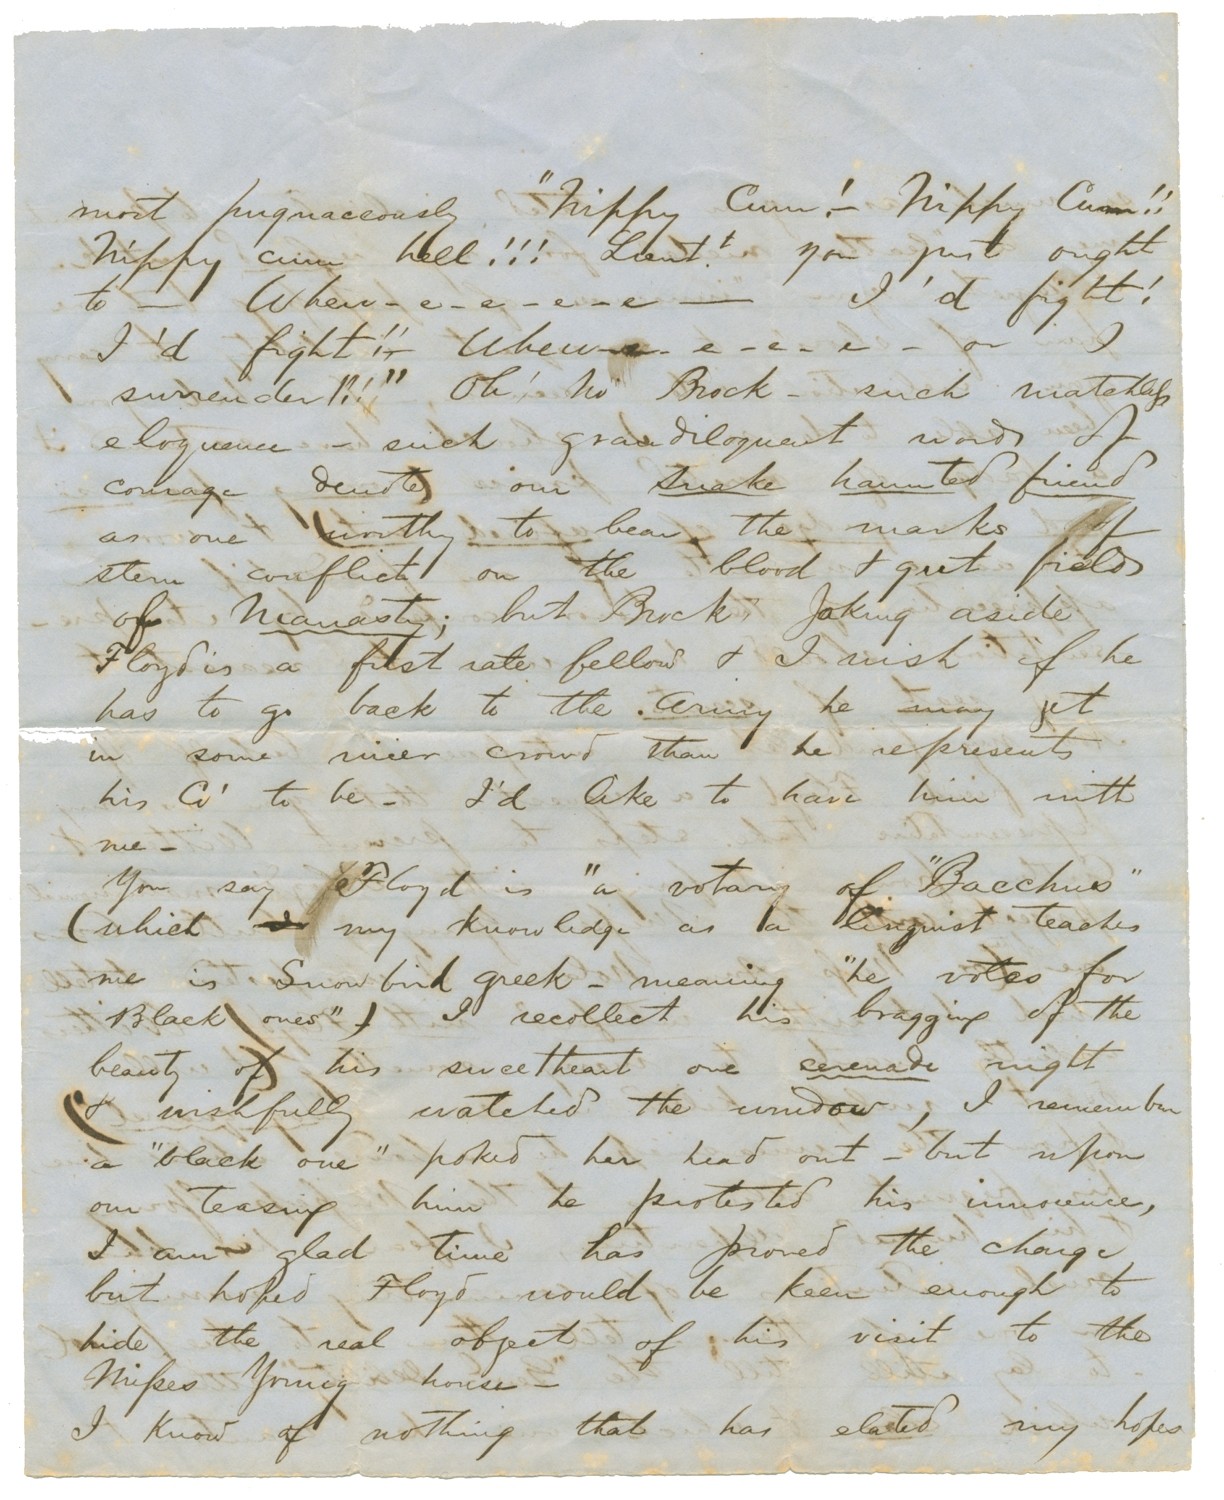 most pugnaceously "Nippy Cum! – Nippy Cum!!
Nippy cum hell!!! Lieut.t you just ought
to — Whew-e-e-e-e-e — I'd fight!
I'd fight!! – Whew-e-e-e-e- or I
surrender!!!" Oh! No Brock – such matchless
eloquence – such grandiloquent words of
courage denote our snake haunted friend
as one worthy to bear the marks of
stern conflict on the blood & gut fields
of Manasty; but Brock Joking aside
Floyd is a first rate fellow & I wish if he
has to go back to the army he may get
in some nicer crowd than he represents
his Co' to be – I'd like to have him with
me –
You say Floyd is "a votary of "Bacchus"
(which my knowledge as a linguist teaches
me is Snowbird greek – meaning "he votes for
Black ones") I recollect his bragging of the
beauty of his sweetheart one serenade night
& wishfully watched the window, I remember
a "black one" poked her head out – but upon
our teasing him he protested his innocence,
I am glad time has proved the charge
but hoped Floyd would be keen enough to
hide the real object of his visit to the
Misses Young house –
I know of nothing that has elated my hopes